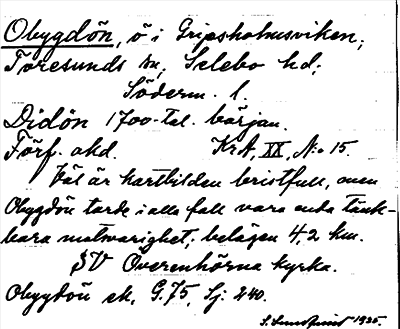 Obygdön, ö i Gripsholmsviken;
Toresunds sn; Selebo hd;
Söderm. l.
Didön 1700-tal. början.
Förf. okd. KrA, XX, No 15.
Väl är kartbilden bristfull, men
Obygdön torde i alla fall vara enda tänk-
bara motsvarighet; belägen 4,2 km.
SV Överenhörna kyrka.
Obygdön ek. G.75, Sj. 240.
S. 1925.